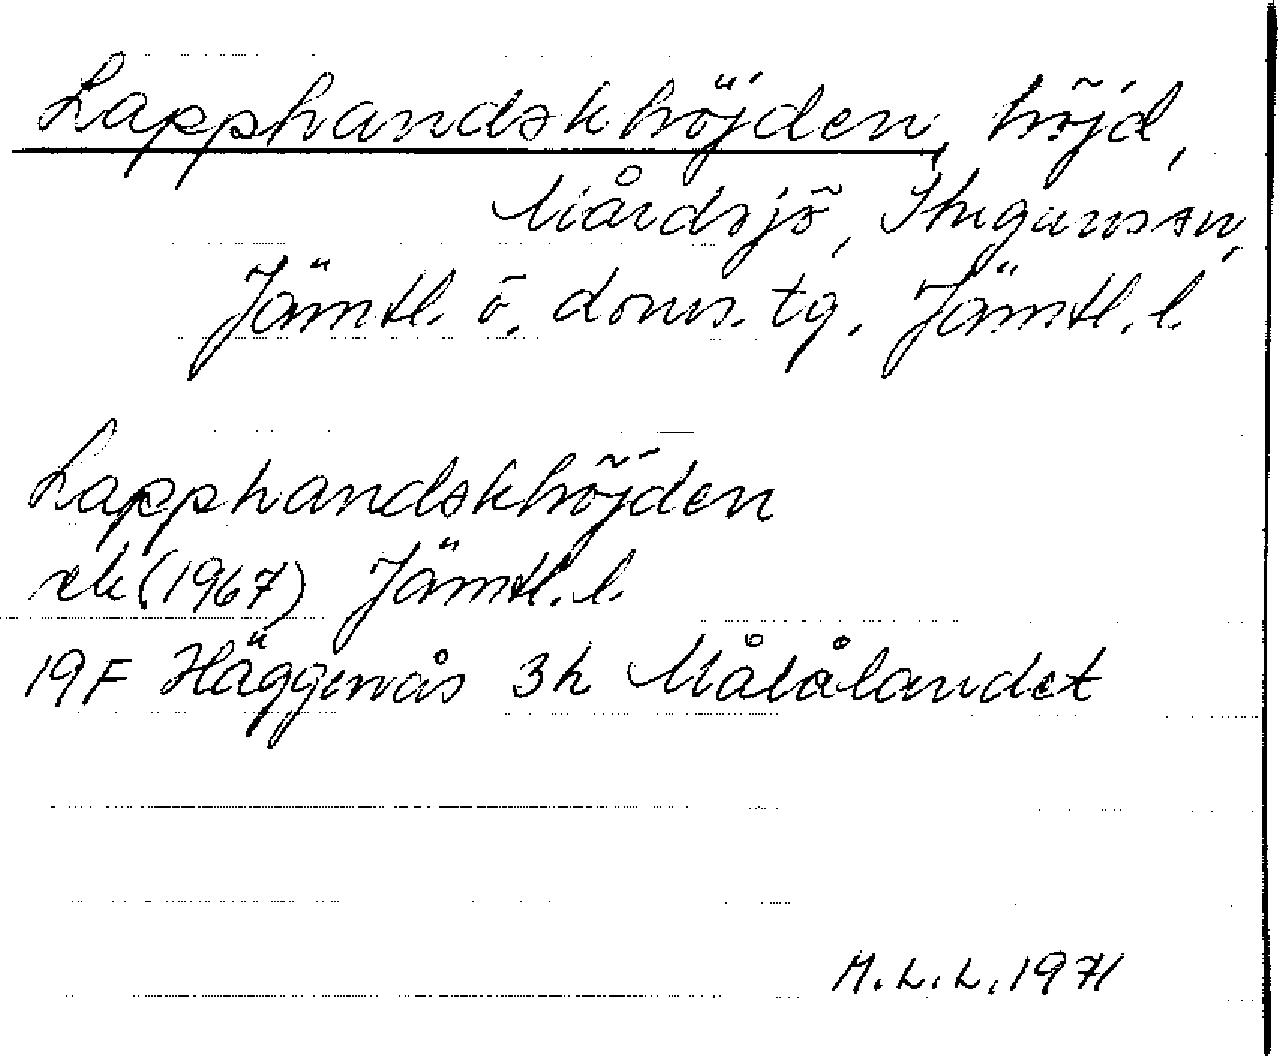 Lapphandskhöjden, höjd,
Mårdsjö, Stugunssn,
Jämtl. ö. doms. tg. Jämtl. l.
Lapphandskhöjden
ek (1967) Jämtl. l.
19F Häggenås 3h Målålandet
M.L.L. 1971